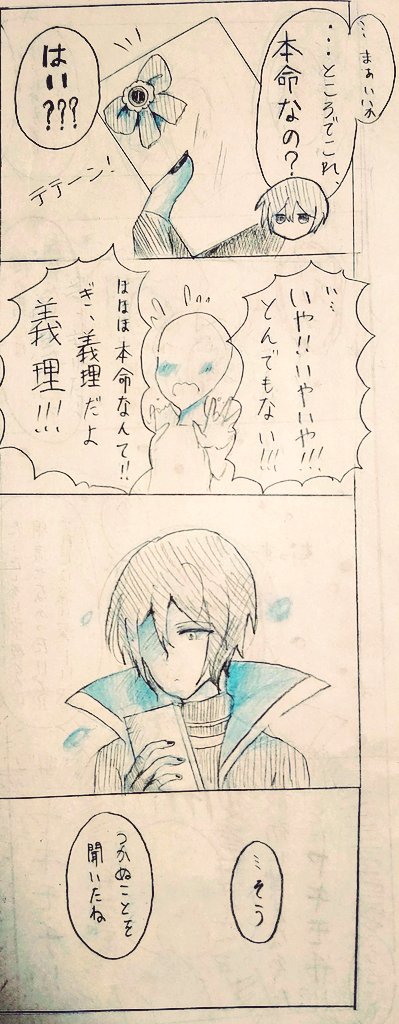 …まぁいいや
…ところでこれ、
本命なの？
はい???
テテーン!
い…
いや!!いやいや!!!
とんでもない!!!
ほほほ本命なんて!!
ぎ、義理だよ
義理!!!
…そう
つかぬことを
聞いたね